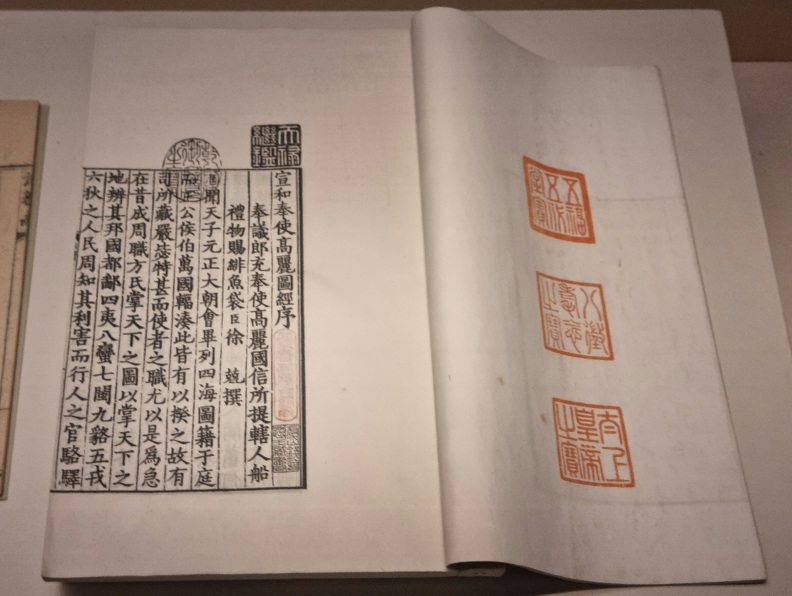 五福五代堂寶
八徵耄念之寶
太上皇帝之寶
天祿繼鑑
宣和奉使髙麗圖經序
奉議郎充奉使髙麗國信所提轄人船
禮物賜緋魚袋臣徐 兢撰
臣聞天子元正大朝會畢列四海圖籍于庭
而王公侯伯萬國輻湊此皆有以揆之故有
司所藏嚴毖特甚而使者之職尤以是爲急
在昔成周職方氏掌天下之圖以掌天下之
地辨其邦國都鄙四夷八蠻七閩九貉五戎
六狄之人民周知其利害而行人之官駱驛